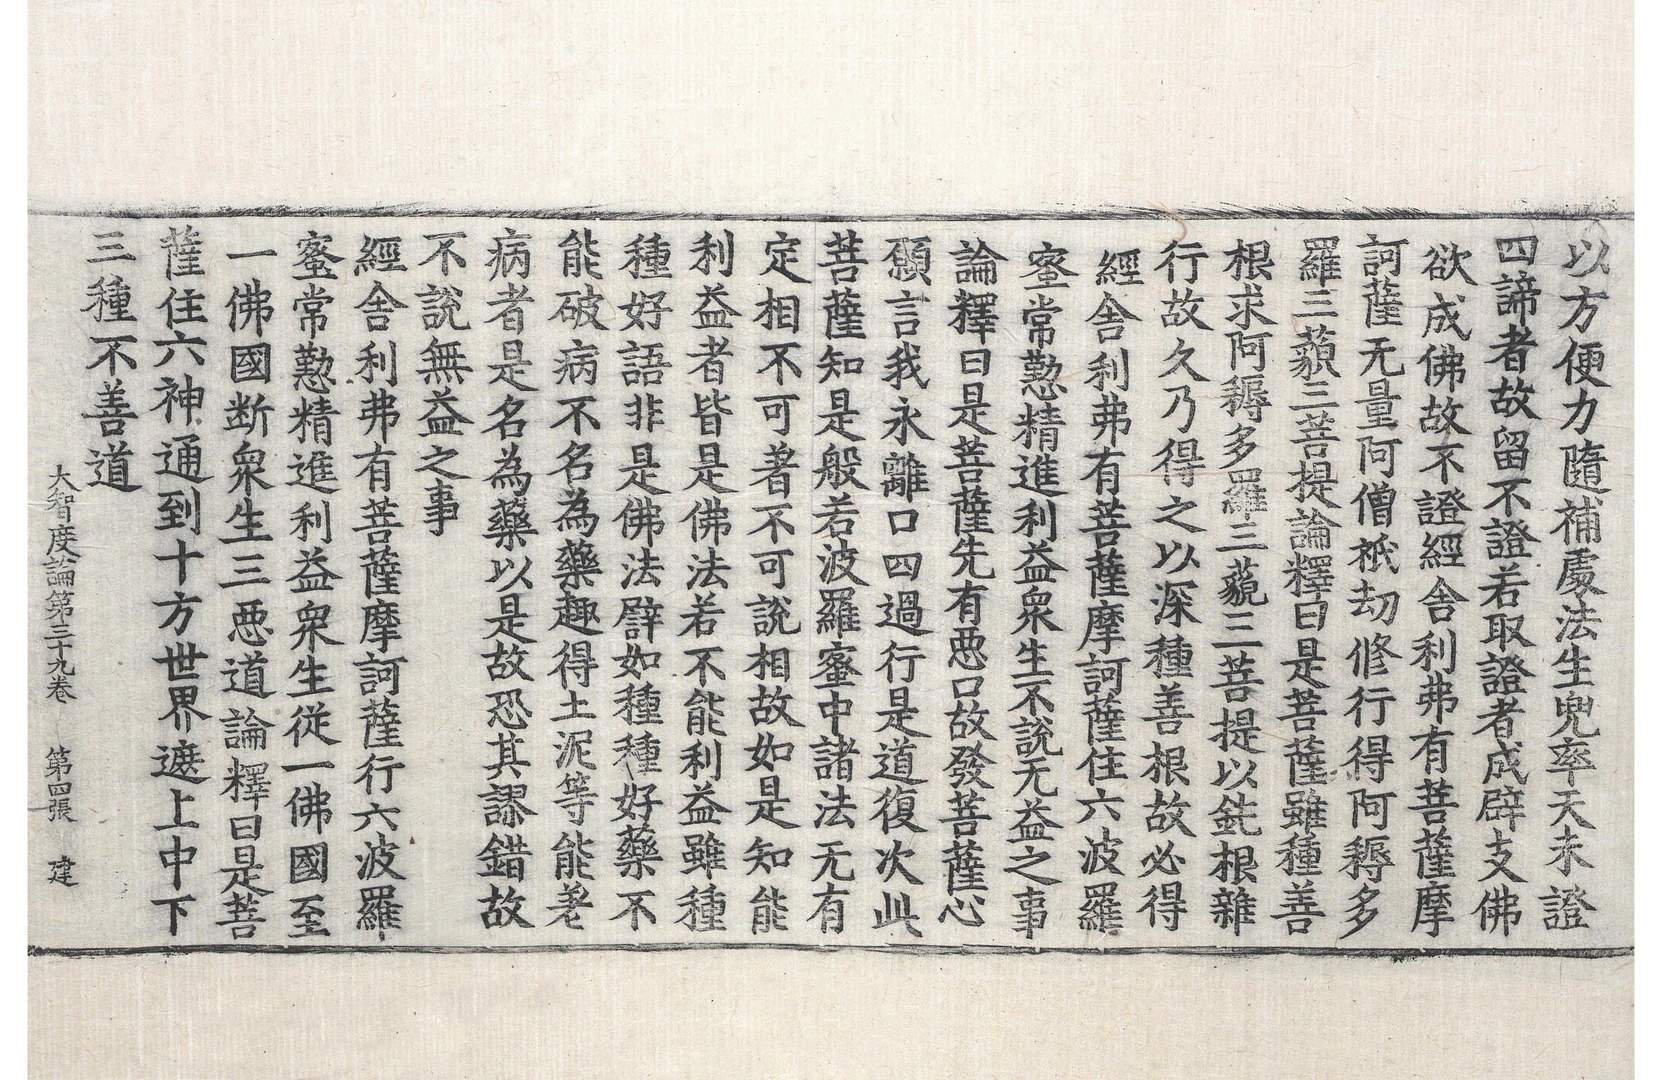 以方便力隨補處法生兜率天未證
四諦者故留不證若取證者成辟支佛
欲成佛故不證經舍利弗有菩薩摩
訶薩无量阿僧祇劫修行得阿耨多
羅三藐三菩提論釋曰是菩薩雖種善
根求阿耨多羅三藐三菩提以鈍根雜
行故久乃得之以深種善根故必得
經舍利弗有菩薩摩訶薩住六波羅
蜜常懃精進利益衆生不說无益之事
論釋曰是菩薩先有惡口故發菩薩心
願言我永離口四過行是道復次此
菩薩知是般若波羅蜜中諸法无有
定相不可著不可說相故如是知能
利益者皆是佛法若不能利益雖種
種好語非是佛法譬如種種好藥不
能破病不名為藥趣得土泥等能差
病者是名為藥以是故恐其謬錯故
不說無益之事
經舍利弗有菩薩摩訶薩行六波羅
蜜常懃精進利益衆生從一佛國至
一佛國断衆生三惡道論釋曰是菩
薩住六神通到十方世界遮上中下
三種不善道
大智度論第三十九卷　第四張　建